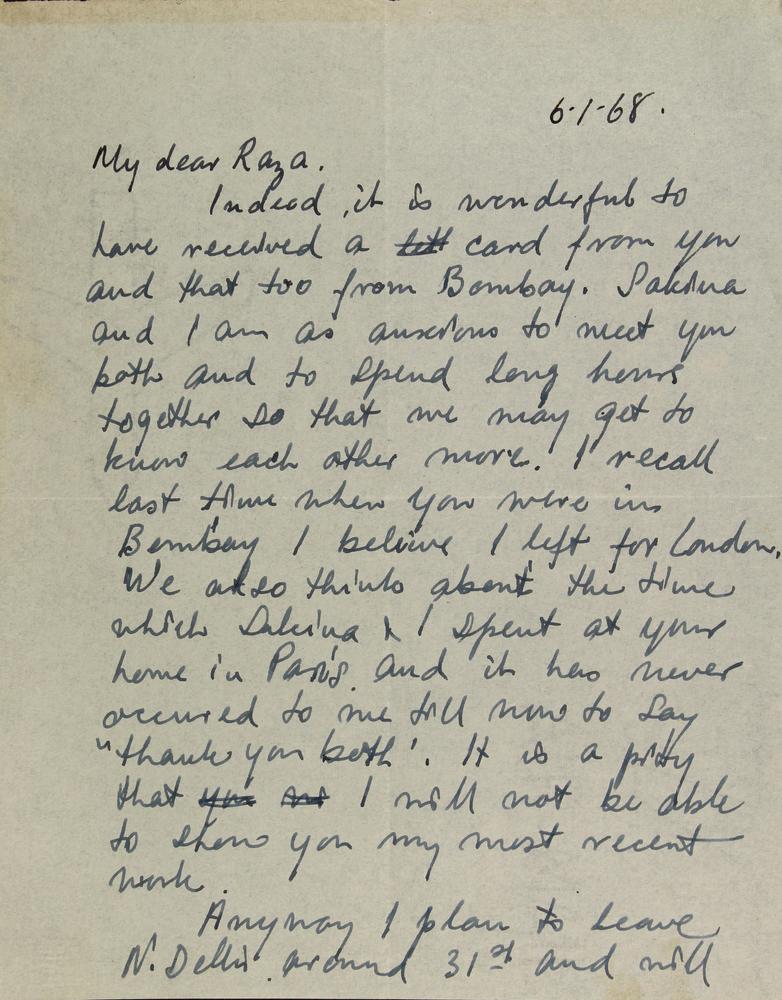 6-1-68.
My dear Raza.
Indeed, it is wonderful to
have received a lett card from you
and that too from Bombay. Sakina
and I am as anxious to meet you
both and to spend long hours
together so that we may get to
know each other more. I recall
last time when you were in
Bombay I believe I left for London.
We also think about the time
which Sakina & I spent at your
home in Paris. and it has never
occured to me till now to say
"thank you both'. It is a pity
that you I will not be able
to show you my most recent
work.
Anyway I plan to leave
N. Delhi around 31st and will